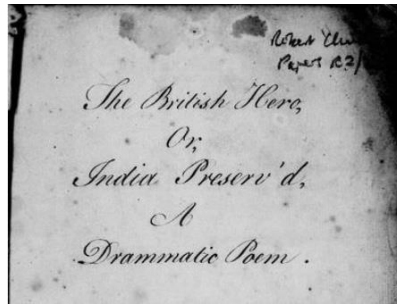 Robert Clive
Papers R2/
The British Hero,
Or,
India Preserv'd,
A
Drammatic Poem.